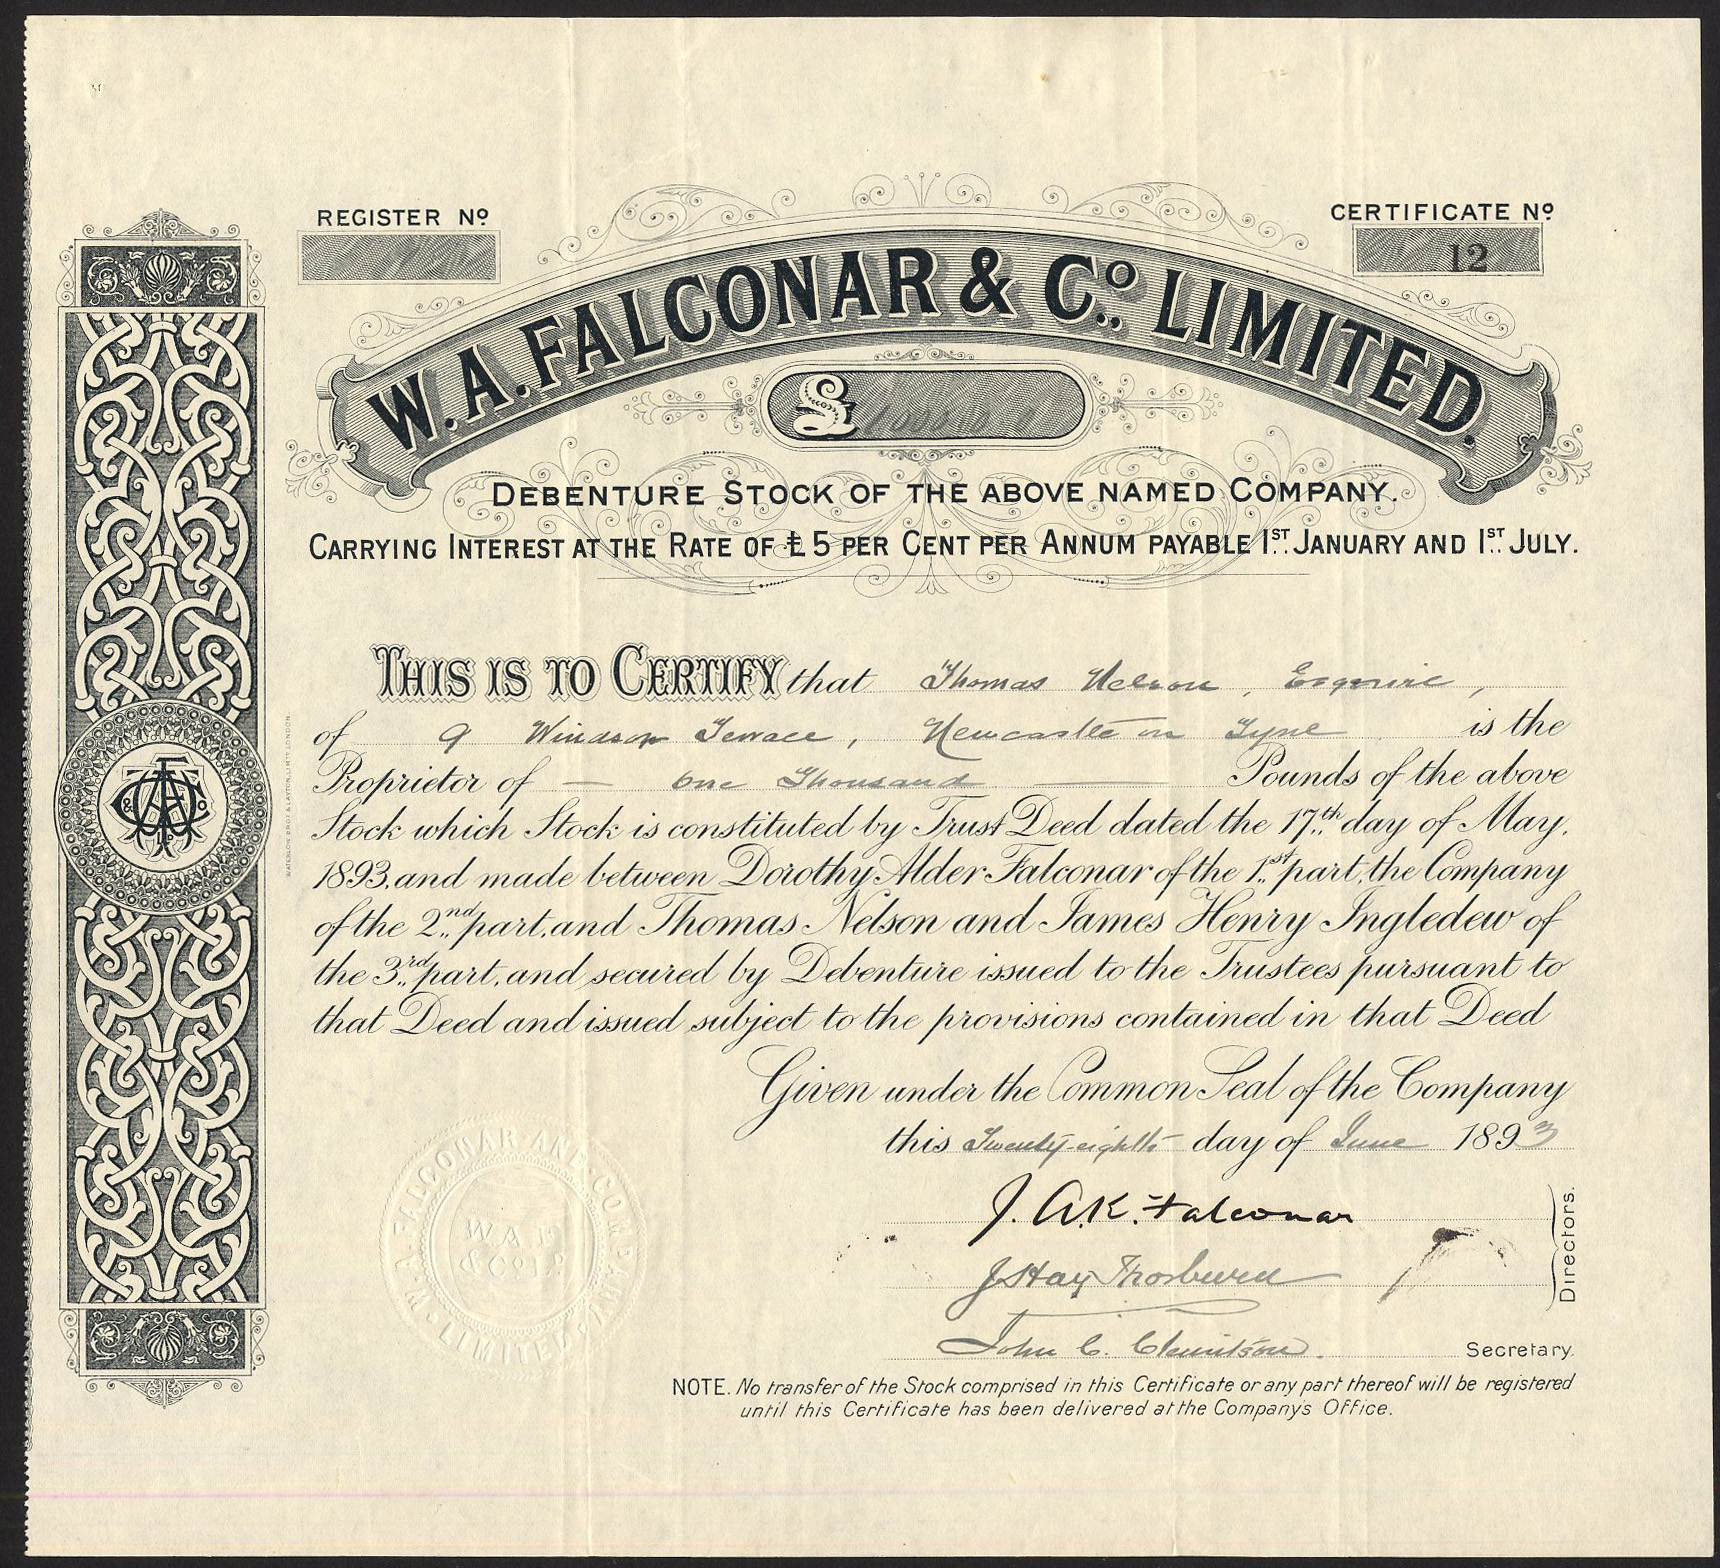 REGISTER No
CERTIFICATE No
12
W. A. FALCONAR & Co., LIMITED.
£ 1000
DEBENTURE STOCK OF THE ABOVE NAMED COMPANY.
CARRYING INTEREST AT THE RATE OF £5 PER CENT PER ANNUM PAYABLE 1ST JANUARY AND 1ST JULY.
THIS IS TO CERTIFY that Thomas Nelson, Esquire,
of 9 Windsor Terrace, Newcastle on Tyne is the
Proprietor of — one Thousand — Pounds of the above
Stock which Stock is constituted by Trust Deed dated the 17th day of May,
1893, and made between Dorothy Alder Falconar of the 1st part, the Company
of the 2nd part, and Thomas Nelson and James Henry Ingledew of
the 3rd part, and secured by Debenture issued to the Trustees pursuant to
that Deed and issued subject to the provisions contained in that Deed
Given under the Common Seal of the Company
this Twenty-eighth day of June 1893
J. A. K. Falconar
J Hay Thorburn
Directors.
John C. Clemitson. Secretary.
NOTE. No transfer of the Stock comprised in this Certificate or any part thereof will be registered
until this Certificate has been delivered at the Company's Office.
W. A. FALCONAR AND COMPANY LIMITED
W. A. F
& Co Ld
WATERLOW BROS & LAYTON, LIMTD, LONDON.